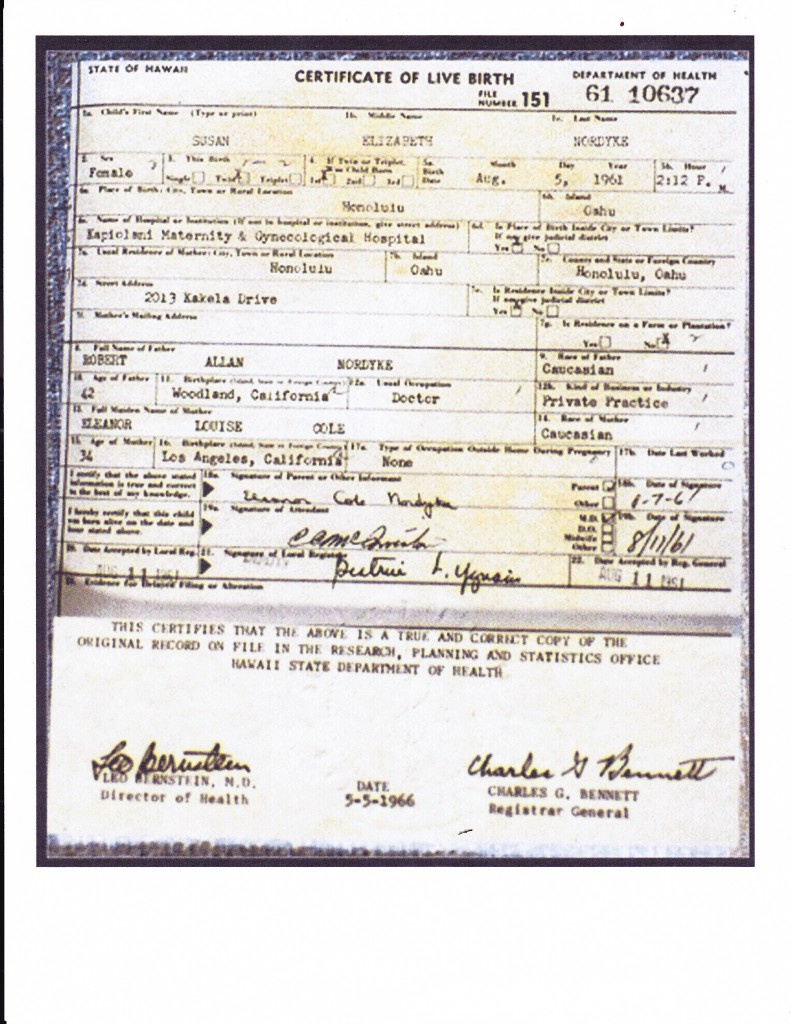 STATE OF HAWAII
CERTIFICATE OF LIVE BIRTH
DEPARTMENT OF HEALTH
FILE NUMBER 151 61 10637
1a. Child's First Name (Type or print) 1b. Middle Name 1c. Last Name
SUSAN ELIZABETH NORDYKE
2. Sex 3. This Birth 4. If Twin or Triplet, Was Child Born 5a. Birth Date Month Day Year 5b. Hour
Female Single Twin Triplet 1st 2nd 3rd Aug. 5, 1961 2:12 P. M.
6a. Place of Birth: City, Town or Rural Location 6b. Island
Honolulu Oahu
6c. Name of Hospital or Institution (If not in hospital or institution, give street address) 6d. Is Place of Birth Inside City or Town Limits? If no, give judicial district
Kapiolani Maternity & Gynecological Hospital Yes No
7a. Usual Residence of Mother: City, Town or Rural Location 7b. Island 7c. County and State or Foreign Country
Honolulu Oahu Honolulu, Oahu
7d. Street Address 7e. Is Residence Inside City or Town Limits? If no, give judicial district
2013 Kakela Drive Yes No
7f. Mother's Mailing Address 7g. Is Residence on a Farm or Plantation?
Yes No
8. Full Name of Father 9. Race of Father
ROBERT ALLAN NORDYKE Caucasian
10. Age of Father 11. Birthplace (Island, State or Foreign Country) 12a. Usual Occupation 12b. Kind of Business or Industry
42 Woodland, California Doctor Private Practice
13. Full Maiden Name of Mother 14. Race of Mother
ELEANOR LOUISE COLE Caucasian
15. Age of Mother 16. Birthplace (Island, State or Foreign Country) 17a. Type of Occupation Outside Home During Pregnancy 17b. Date Last Worked
34 Los Angeles, California None
I certify that the above stated information is true and correct to the best of my knowledge.
18a. Signature of Parent or Other Informant Parent Other 18b. Date of Signature
Eleanor Cole Nordyke 8-7-61
I hereby certify that this child was born alive on the date and hour stated above.
19a. Signature of Attendant M.D. D.O. Midwife Other 19b. Date of Signature
8/11/61
20. Date Accepted by Local Reg. 21. Signature of Local Registrar 22. Date Accepted by Reg. General
AUG 11 1961 AUG 11 1961
23. Evidence for Delayed Filing or Alteration
THIS CERTIFIES THAT THE ABOVE IS A TRUE AND CORRECT COPY OF THE
ORIGINAL RECORD ON FILE IN THE RESEARCH, PLANNING AND STATISTICS OFFICE
HAWAII STATE DEPARTMENT OF HEALTH
Leo Bernstein Charles G Bennett
LEO BERNSTEIN, M.D. DATE CHARLES G. BENNETT
Director of Health 5-5-1966 Registrar General